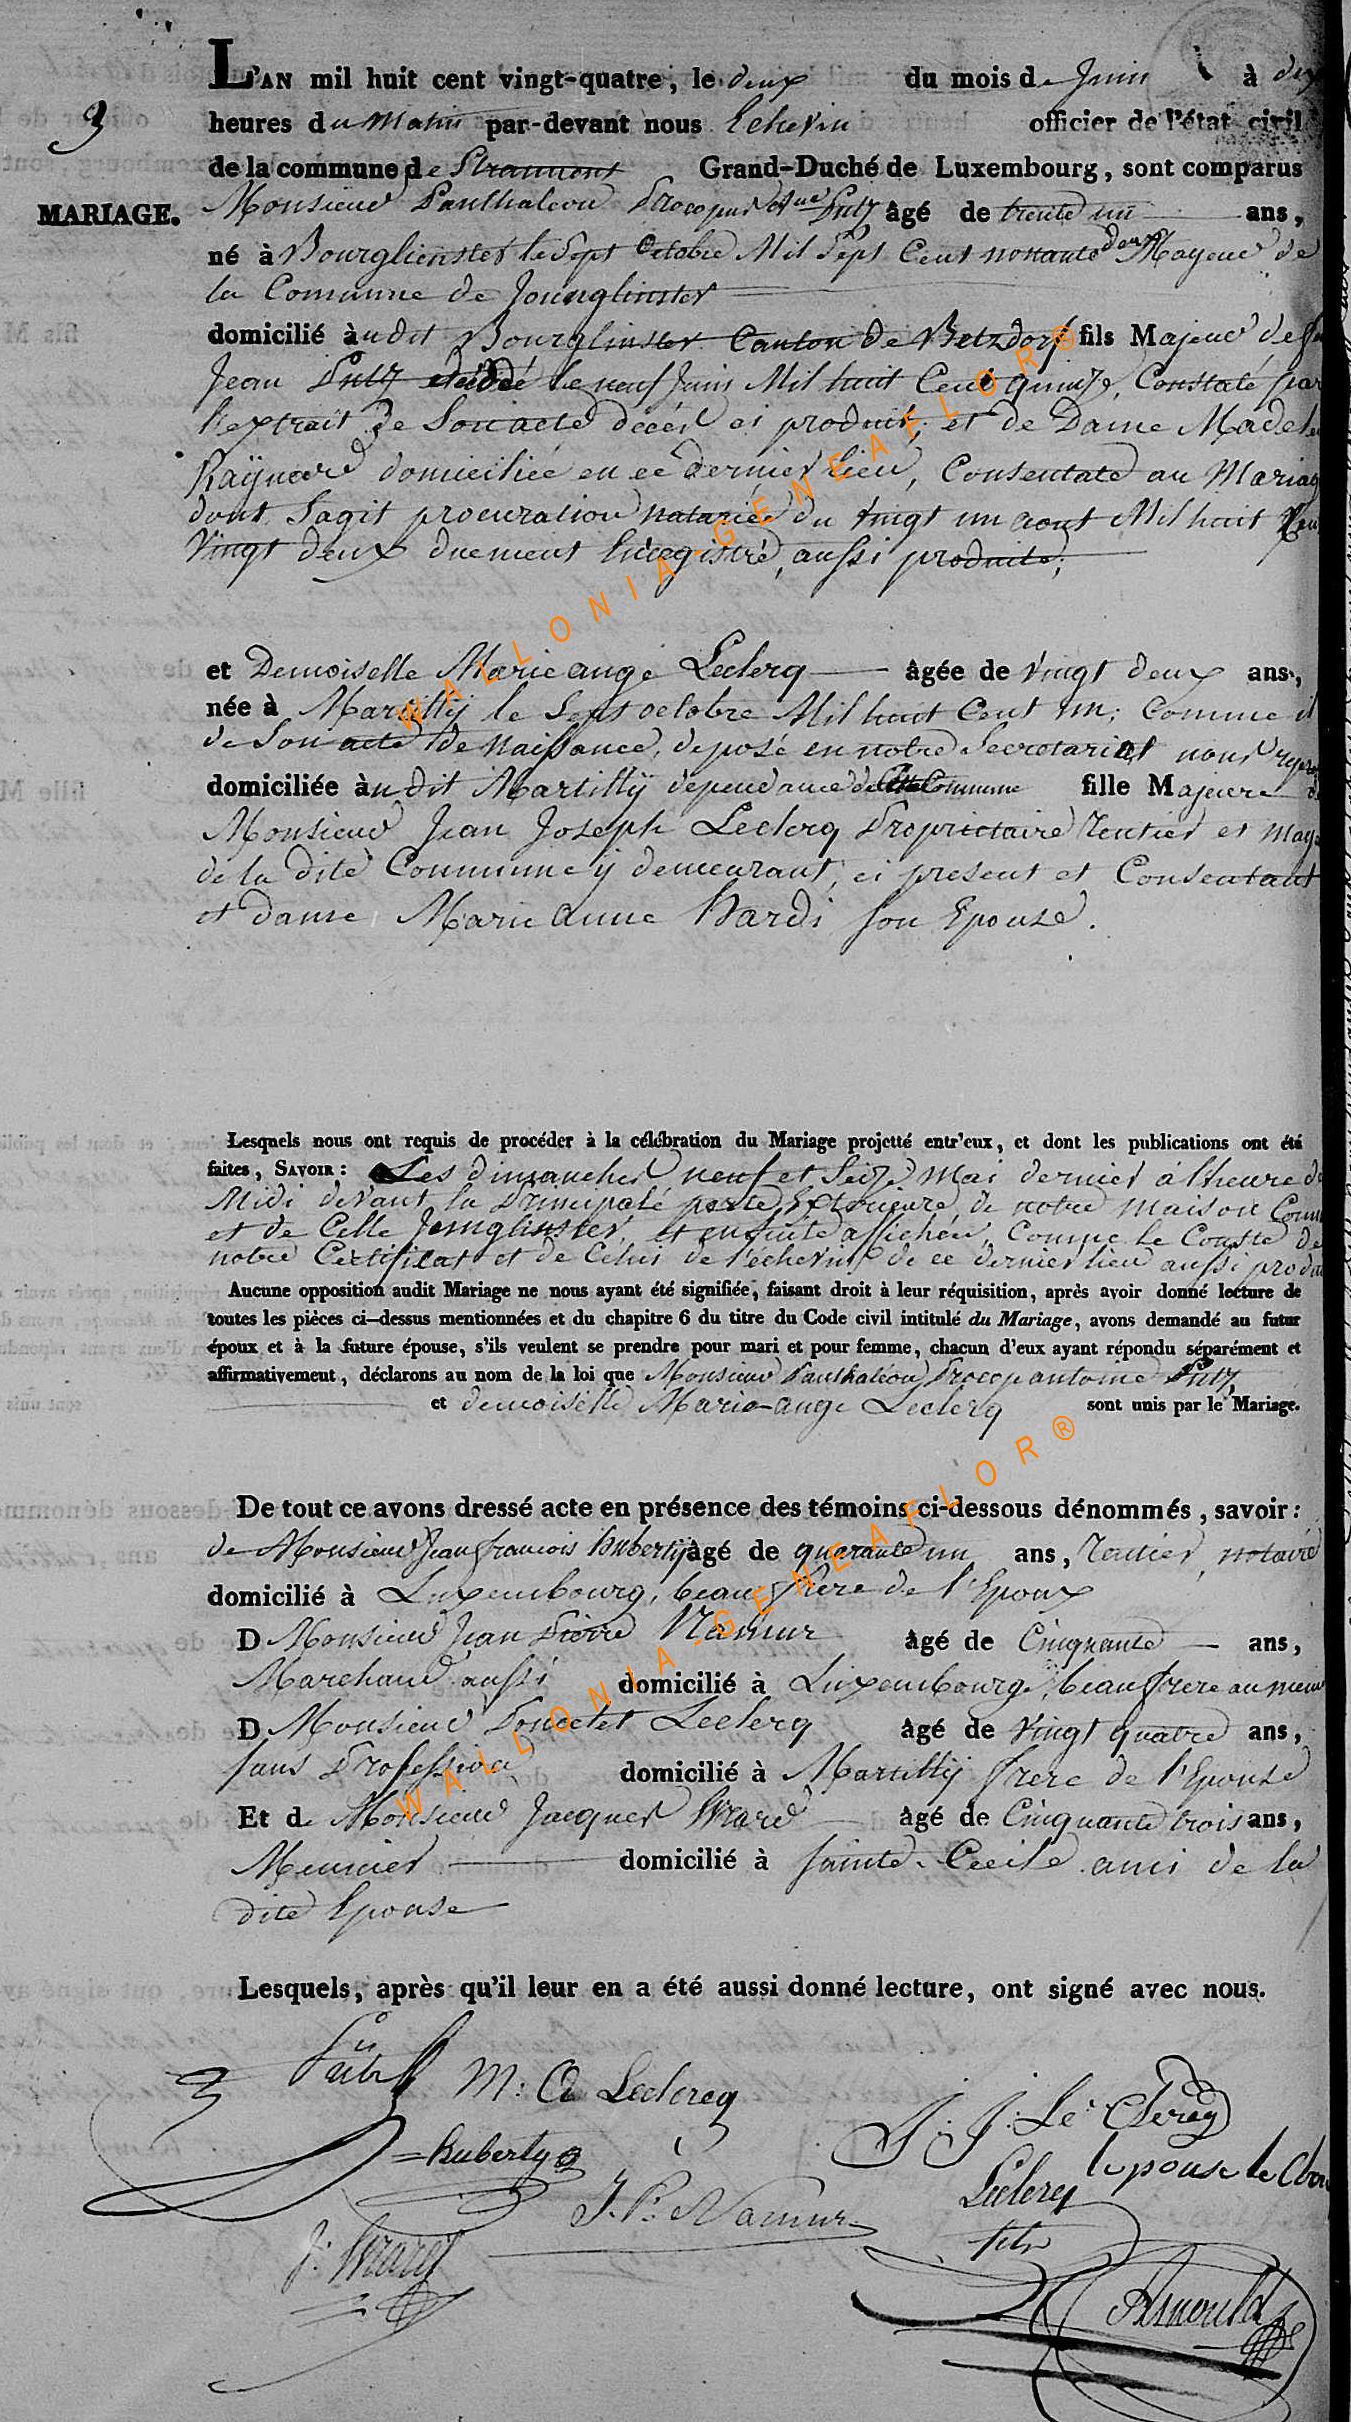 L'AN mil huit cent vingt-quatre, le deux du mois de Juin à dix
3
heures du Matin par-devant nous Echevin officier de l'état civil
de la commune de Straimont Grand-Duché de Luxembourg, sont comparus
MARIAGE.
Monsieur Panthaleon Procope Putz âgé de trente un ans,
né à Bourglienster le Sept Octobre Mil Sept Cent nonante deux Mayeur de
la Commune de Jounglinster
domicilié audit Bourglinster Canton de Betzdorf fils Majeur de feu
Jean Putz décédé le neuf Juin Mil huit Cent quinze, Constaté par
l'extrait de Son acte décès ci produit, et de Dame Madel
domiciliée en ce dernier lieu, Consentate au Mariag
dont Sagit procuration notariée du vingt un aout Mil huit Cen
Vingt deux duement Enregistré, aussi produite;
et Demoiselle Marie ange Leclerq âgée de Vingt deux ans,
née à Martilly le Sept octobre Mil huit Cent un; Comme il
de Son acte de Naissance, deposé en notre Secretariat nous
domiciliée audit Martilly dependance de Cette Commune fille Majeure de
Monsieur Jean Joseph Leclerq Propriétaire Rentier et May
de la dite Commune y demeurant, ci present et Consentant
et dame Marie Anne Hardi son Epouse.
Lesquels nous ont requis de procéder à la célébration du Mariage projetté entr'eux, et dont les publications ont été
faites, SAVOIR: Les dimanches neuf et Seize Mai dernier à l'heure de
Midi devant la Principale porte Extérieure de notre maison Com
et de Celle Jounglinster, et ensuite affichées, Comme le Conste de
notre Certificat et de Celui de l'échevin de ce dernier lieu aussi produ
Aucune opposition audit Mariage ne nous ayant été signifiée, faisant droit à leur réquisition, après avoir donné lecture de
toutes les pièces ci-dessus mentionnées et du chapitre 6 du titre du Code civil intitulé du Mariage, avons demandé au futur
époux et à la future épouse, s'ils veulent se prendre pour mari et pour femme, chacun d'eux ayant répondu séparément et
affirmativement, déclarons au nom de la loi que Monsieur Panthaléon Procop antoine Putz,
et demoiselle Marie-ange Leclerq sont unis par le Mariage.
De tout ce avons dressé acte en présence des témoins ci-dessous dénommés, savoir:
de Monsieur Jean francois huberty âgé de quarante un ans, Rentier, notaire
domicilié à Luxembourg, beau frère de l'Epoux
D Monsieur Jean Pierre Namur âgé de Cinquante ans,
Marchand aussi domicilié à Luxembourg, beau frere au meme
D Monsieur Leclerq âgé de Vingt quatre ans,
sans Profession domicilié à Martilly frere de l'Epouse
Et de Monsieur Jacques âgé de Cinquante trois ans,
Meunier domicilié à Sainte-Cecile ami de la
dite Epouse
Lesquels, après qu'il leur en a été aussi donné lecture, ont signé avec nous.
Pütz M: A Leclercq
J. J. Le Clercq
huberty
l'epouse le Cler
Leclercq
J. P. Namur
fils
Arnould
WALLONIA-GENEAFLOR®
WALLONIA-GENEAFLOR®